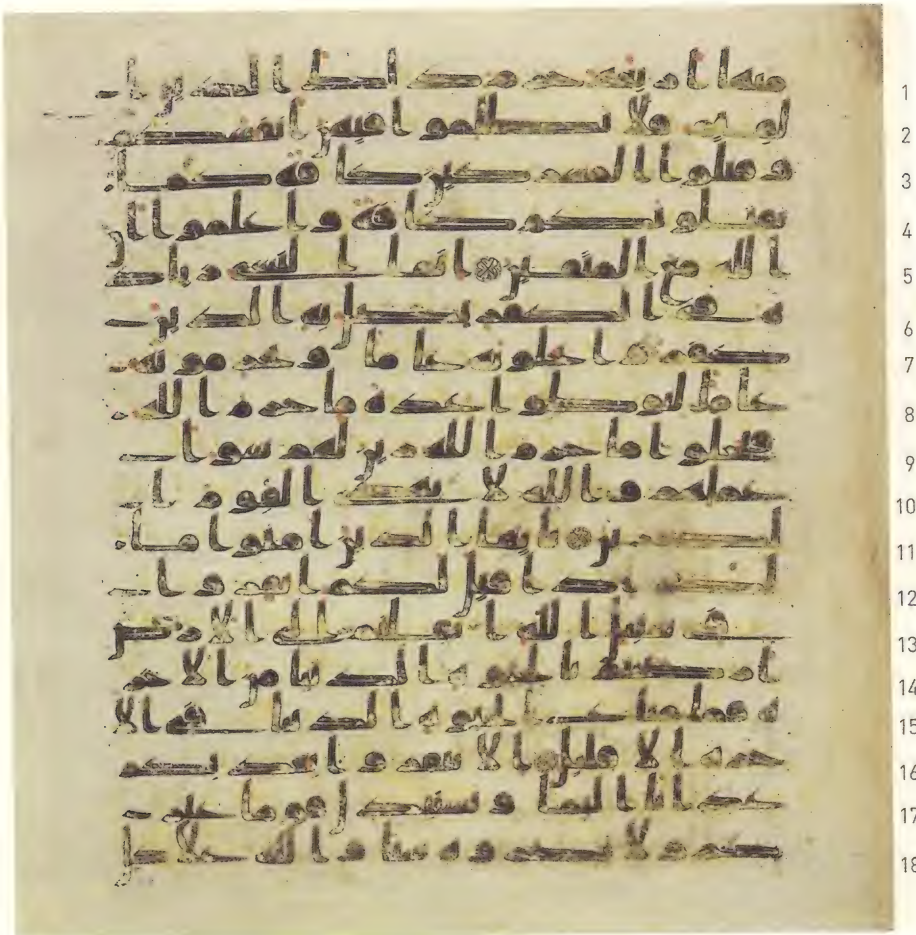 1 منها اربعة حرم ذلك الدين ا
2 لقيم فلا تظلموا فيهن انفسكم
3 وقتلوا المشركين كافة كما
4 يقتلونكم كافة واعلموا ان
5 الله مع المتقين انما النسى زياد
6 ة في الكفر يضل به الذين
7 كفروا يحلونه عاما ويحرمونه
8 عاما ليوطوا عدة ما حرم الله
9 فيحلوا ما حرم الله زين لهم سو ا
10 عملهم والله لا يهدى القوم ا
11 لكفرين يايها الذين امنوا ما
12 لكم اذا قيل لكم انفروا
13 في سبيل الله اثاقلتم الى الارض
14 ارضيتم بالحيوة الدنيا من الاخر
15 ة فما متع الحيوة الدنيا في الا
16 خرة الا قليل الا تنفروا يعذبكم
17 عذابا اليما ويستبدل قوما غير
18 كم ولا تضروه شيا والله على كل